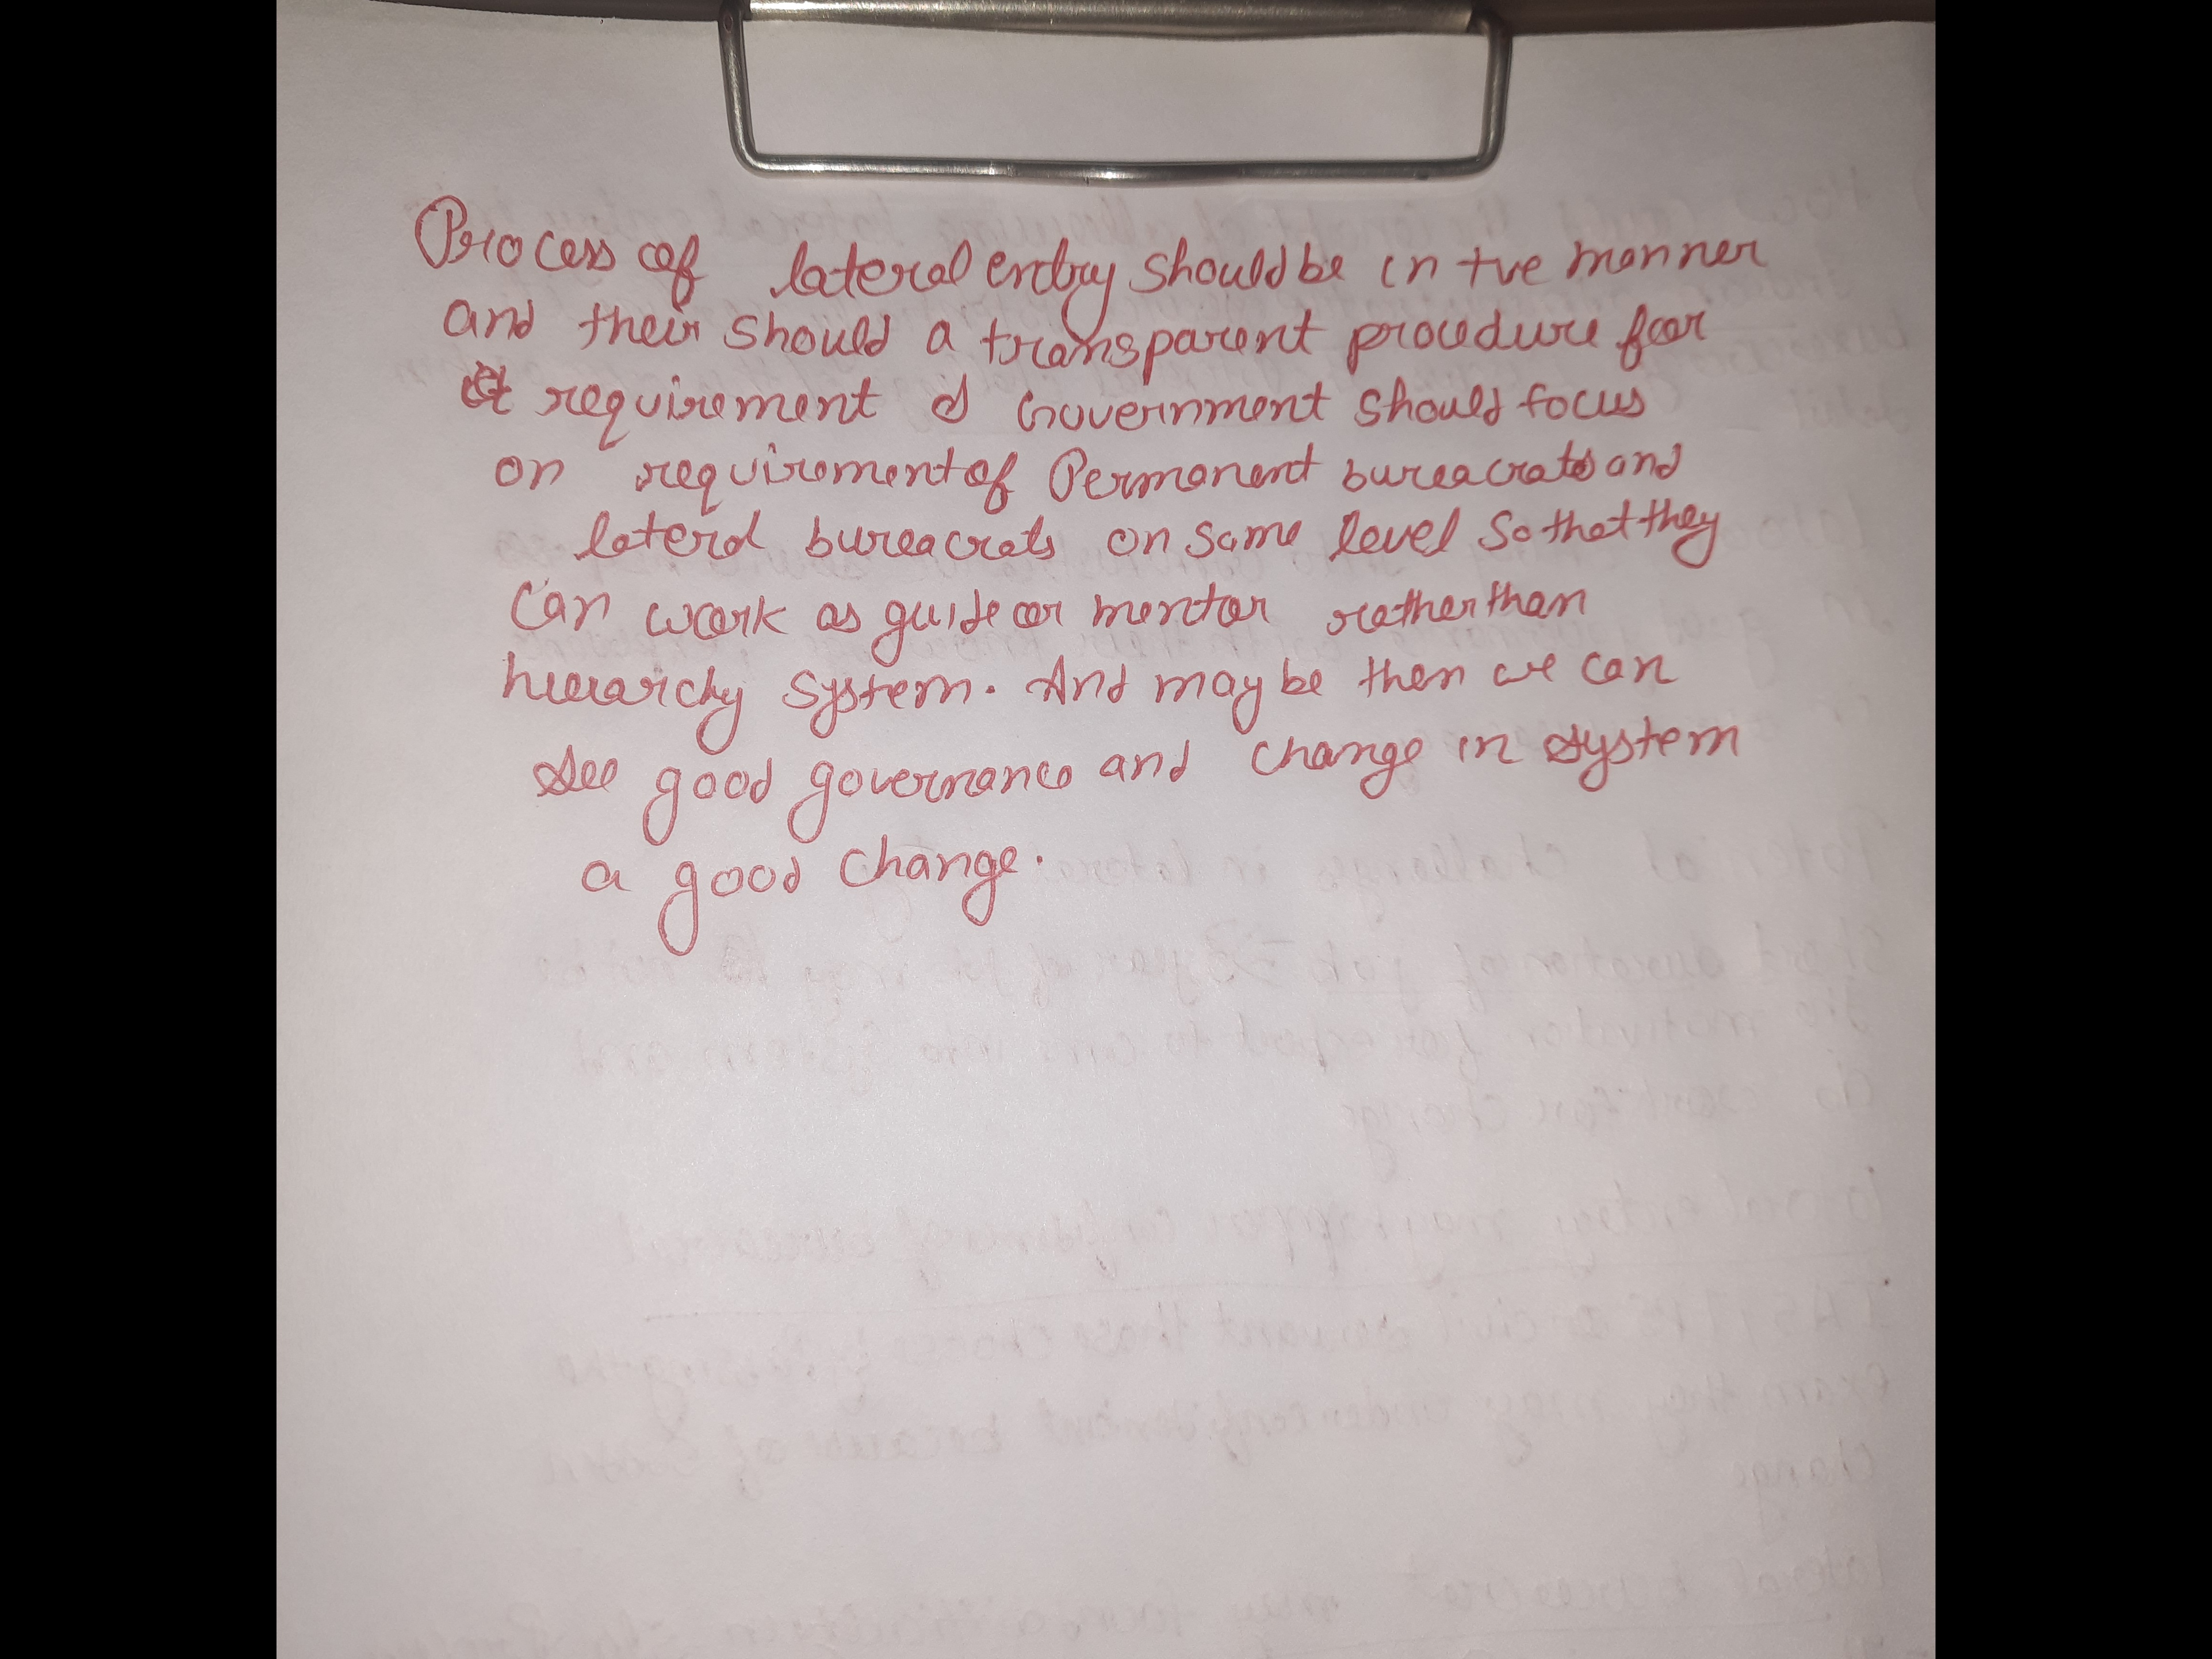 Process of lateral entry should be in +ve manner
and their should a transparent procedure for
requirement & Government should focus
on requirement of Permanent bureacrats and
lateral bureacrats on same level so that they
can work as guide or mentor rather than
hierarchy system. And may be then we can
see good governance and change in system
a good change.